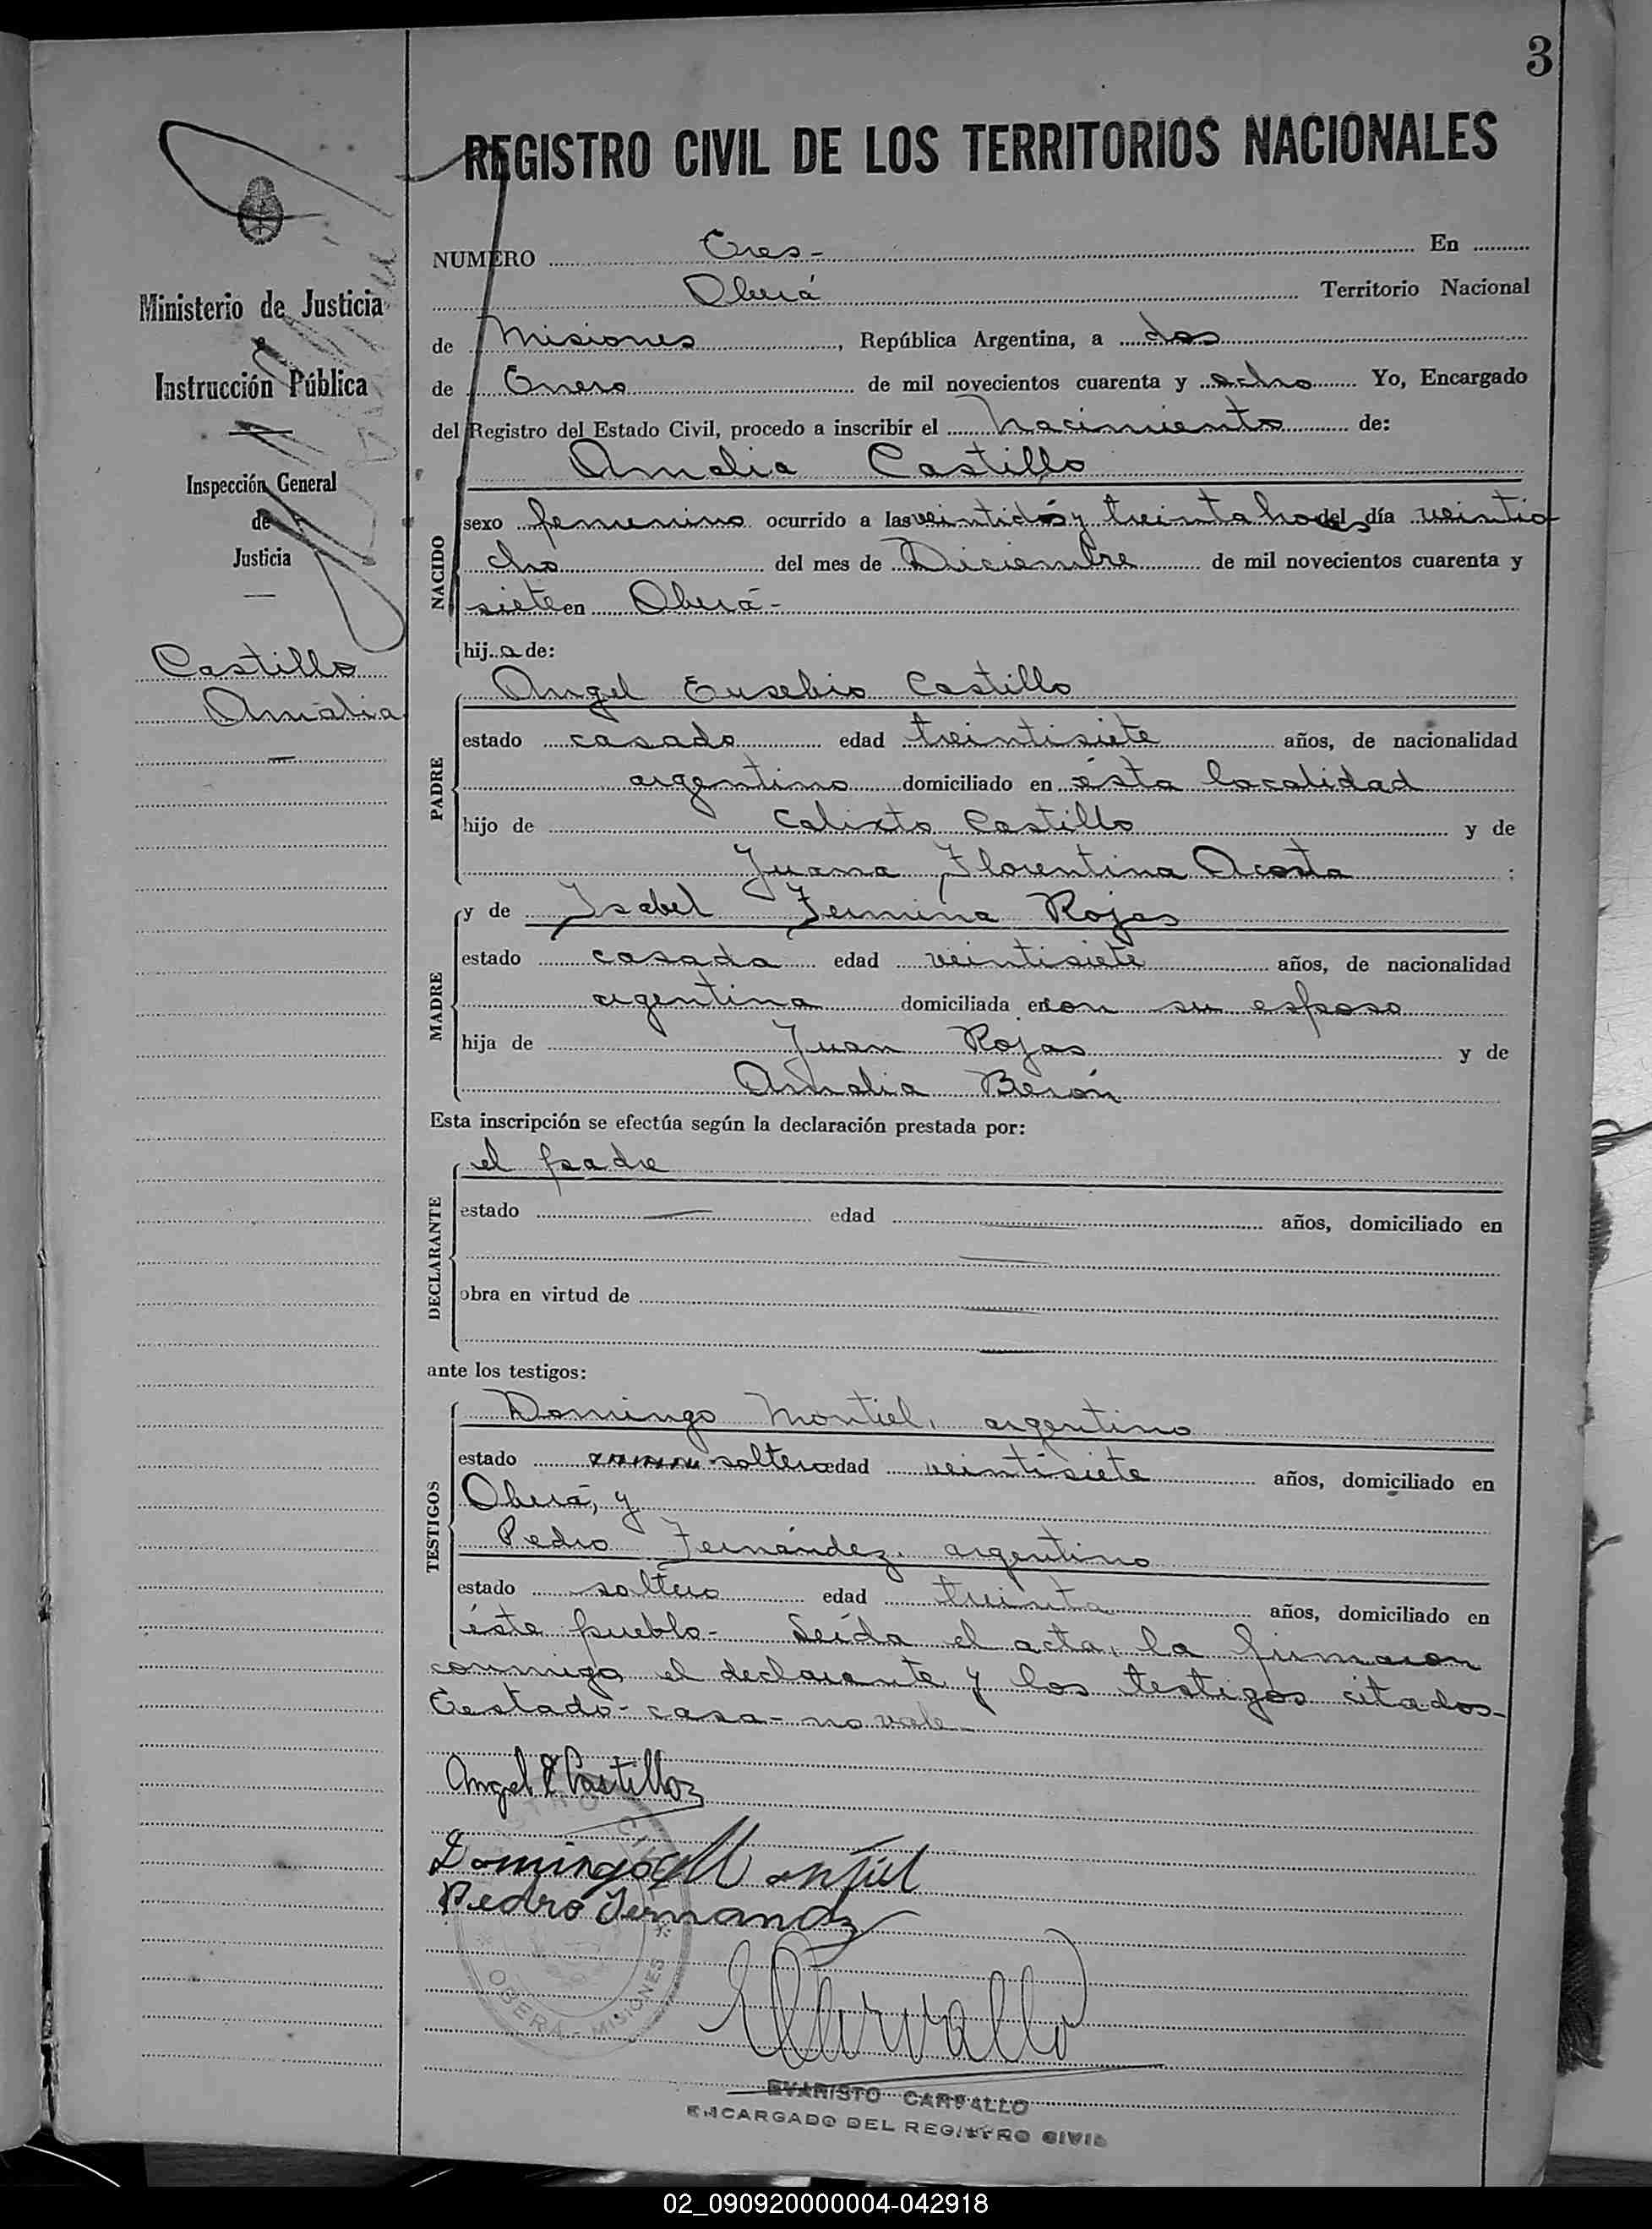 3
REGISTRO CIVIL DE LOS TERRITORIOS NACIONALES
Ministerio de Justicia
e
Instrucción Pública
Inspección General
de
Justicia
Castillo
Amalia
NUMERO Tres- En
Oberá Territorio Nacional
de Misiones, República Argentina, a dos
de Enero de mil novecientos cuarenta y ocho Yo, Encargado
del Registro del Estado Civil, procedo a inscribir el nacimiento de:
Amalia Castillo
NACIDO
sexo femenino ocurrido a las veintidós y treinta horas del día veintio
cho del mes de Diciembre de mil novecientos cuarenta y
siete en Oberá-
hija de:
PADRE
Angel Eusebio Castillo
estado casado edad treintisiete años, de nacionalidad
argentino domiciliado en ésta localidad
hijo de Calixto Castillo y de
Juana Florentina Acosta ;
MADRE
y de Isabel Fermina Rojas
estado casada edad veintisiete años, de nacionalidad
argentina domiciliada en con su esposo
hija de Juan Rojas y de
Amalia Berón
Esta inscripción se efectúa según la declaración prestada por:
DECLARANTE
el padre
estado edad años, domiciliado en
obra en virtud de
ante los testigos:
TESTIGOS
Domingo Montiel, argentino
estado soltero edad veintisiete años, domiciliado en
Oberá, y
Pedro Fernández, argentino
estado soltero edad treinta años, domiciliado en
éste pueblo- Leída el acta, la firmaron
conmigo el declarante y los testigos citados-
Testado- casa- no vale-
Angel E Castillo
Domingo Montiel
Pedro Fernandz
OBERÁ - MISIONES
ECarvallo
EVARISTO CARVALLO
ENCARGADO DEL REGISTRO CIVIL
02_090920000004-042918